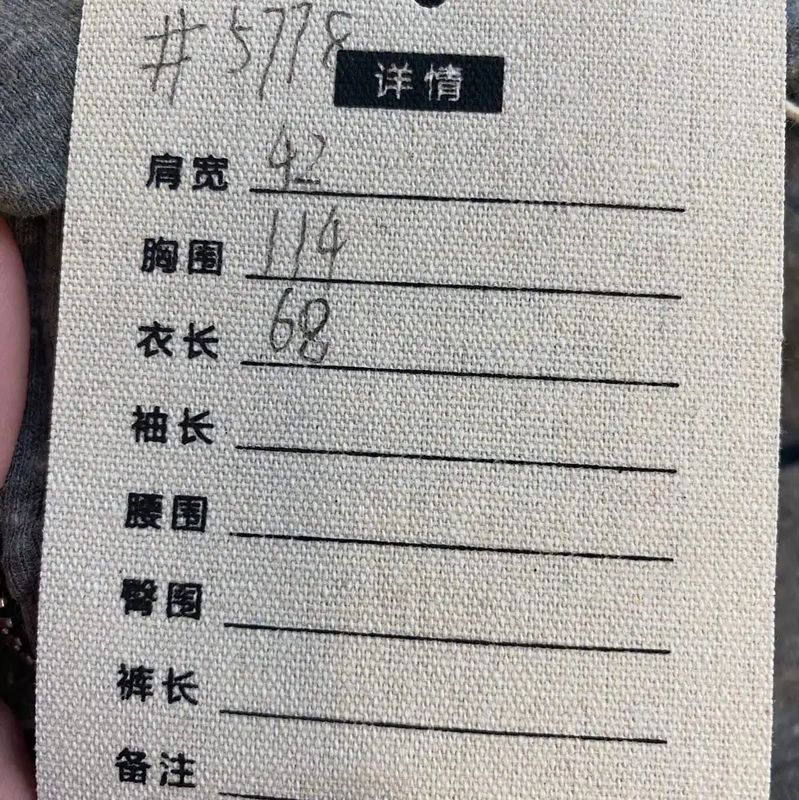 #5778
详情
肩宽 42
胸围 114
衣长 68
袖长
腰围
臀围
裤长
备注